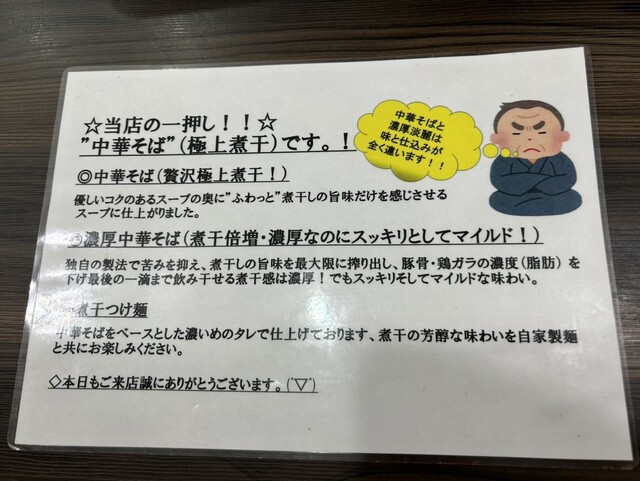 ☆当店の一押し！！☆
"中華そば"(極上煮干)です。！
中華そばと
濃厚淡麗は
味と仕込みが
全く違います！！
◎中華そば(贅沢極上煮干！)
優しいコクのあるスープの奥に"ふわっと"煮干しの旨味だけを感じさせる
スープに仕上がりました。
◎濃厚中華そば(煮干倍増・濃厚なのにスッキリとしてマイルド！)
独自の製法で苦みを抑え、煮干しの旨味を最大限に搾り出し、豚骨・鶏ガラの濃度(脂肪)を
下げ最後の一滴まで飲み干せる煮干感は濃厚！でもスッキリそしてマイルドな味わい。
煮干つけ麺
中華そばをベースとした濃いめのタレで仕上げております、煮干の芳醇な味わいを自家製麺
と共にお楽しみください。
◇本日もご来店誠にありがとうございます。(´▽`)